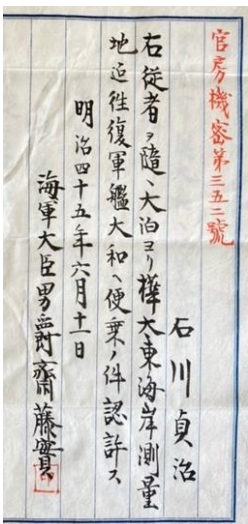 官房機密第三五二號
石川貞治
右従者ヲ隨ヘ大泊ヨリ樺太東海岸測量
地迄往復軍艦大和ヘ便乗ノ件認許ス
明治四十五年六月十一日
海軍大臣男爵齋藤實